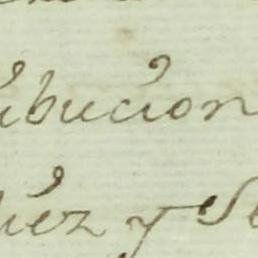 ibucion
iez y Se